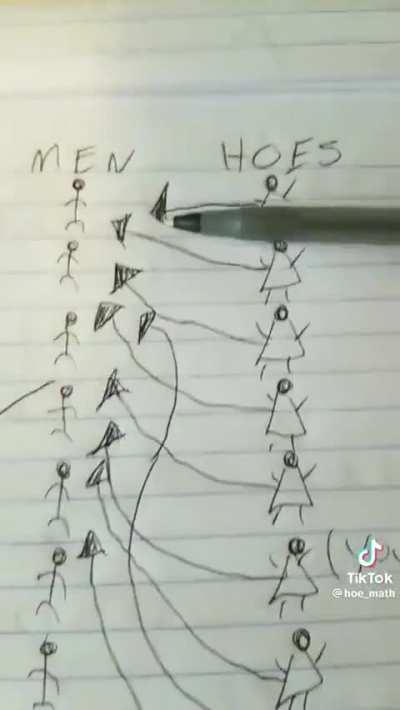 MEN HOES
TikTok
@hoe_math